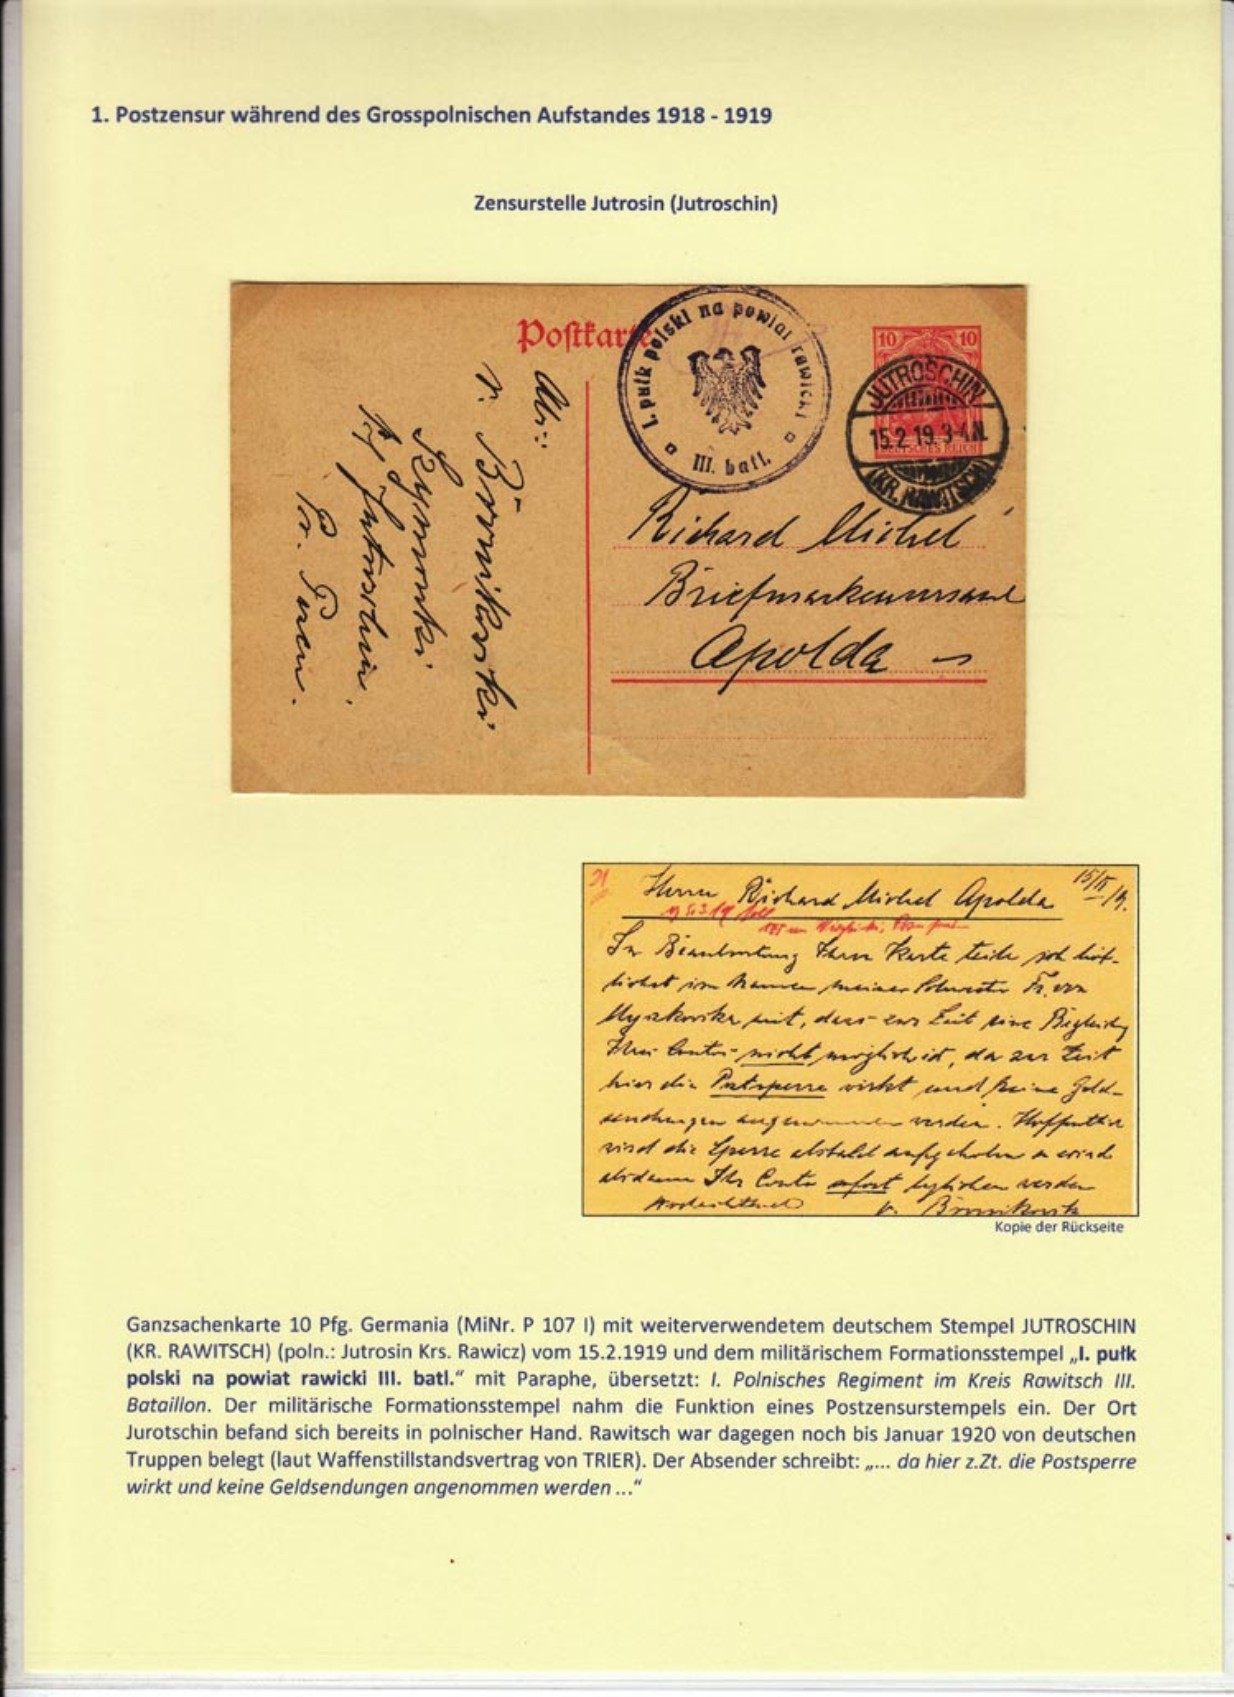 1. Postzensur während des Grosspolnischen Aufstandes 1918 - 1919
Zensurstelle Jutrosin (Jutroschin)
Postkarte
I. pułk polski na powiat rawicki
III. batl.
10 10
DEUTSCHES REICH
JUTROSCHIN
15.2.19. 3-4 N.
(KR. RAWITSCH)
Richard Michel
Briefmarkenversand
Apolda
Abs.:
v. Bronikowski
Szymonki
Jutroschin
Pr. Posen.
15/II 19.
Herrn Richard Michel Apolda
In Beantwortung Ihrer Karte teile ich höf-
lichst im Namen meiner Schwester Fr. von
mit, dass zur Zeit eine Begleichg
Ihres Contos nicht möglich ist, da zur Zeit
hier die Postsperre wirkt und keine Geld-
sendungen angenommen werden. Hoffentlich
wird die Sperre alsbald aufgehoben u wird
alsdann Ihr Conto sofort beglichen werden
Hochachtend v. Bronikowski
Kopie der Rückseite
Ganzsachenkarte 10 Pfg. Germania (MiNr. P 107 I) mit weiterverwendetem deutschem Stempel JUTROSCHIN
(KR. RAWITSCH) (poln.: Jutrosin Krs. Rawicz) vom 15.2.1919 und dem militärischem Formationsstempel „I. pułk
polski na powiat rawicki III. batl.“ mit Paraphe, übersetzt: I. Polnisches Regiment im Kreis Rawitsch III.
Bataillon. Der militärische Formationsstempel nahm die Funktion eines Postzensurstempels ein. Der Ort
Jurotschin befand sich bereits in polnischer Hand. Rawitsch war dagegen noch bis Januar 1920 von deutschen
Truppen belegt (laut Waffenstillstandsvertrag von TRIER). Der Absender schreibt: „... da hier z.Zt. die Postsperre
wirkt und keine Geldsendungen angenommen werden ...“